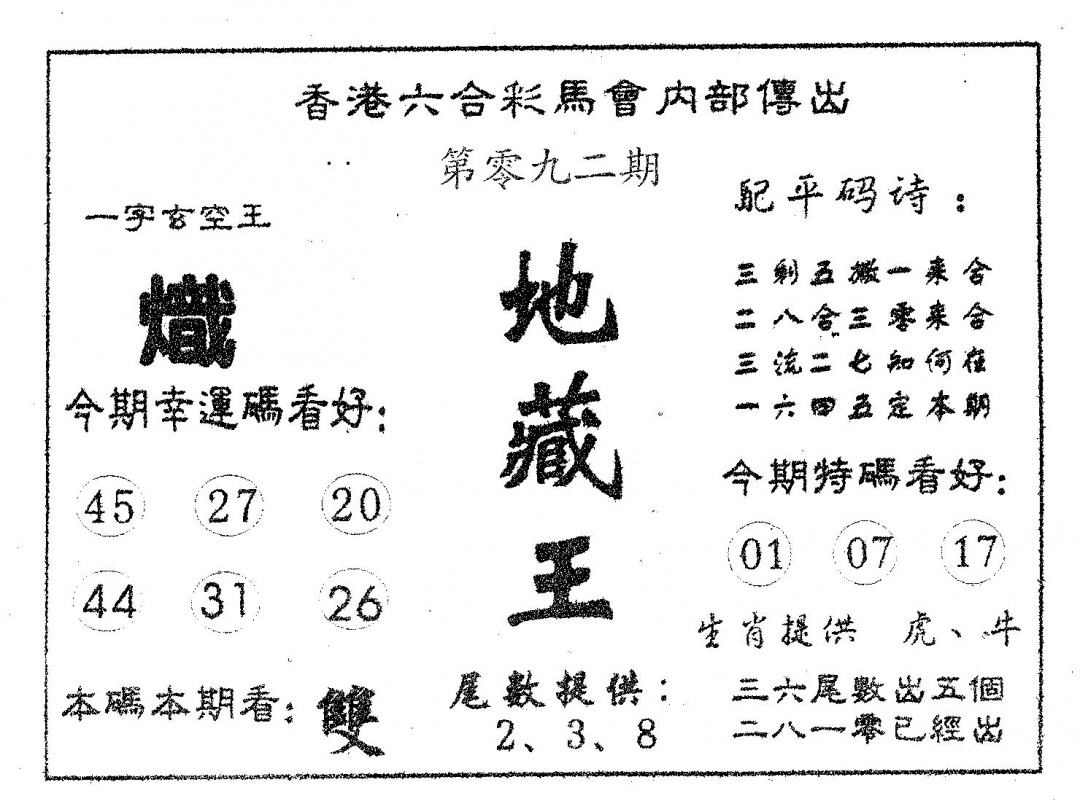 香港六合彩馬會内部傳出
第零九二期
一字玄空王
熾
今期幸運碼看好：
45 27 20
44 31 26
本碼本期看：雙
地
藏
王
尾數提供：
2、3、8
配平码诗：
三剩五搬一来合
二八合三零来合
三流二七知何在
一六四五定本期
今期特碼看好：
01 07 17
生肖提供 虎、牛
三六尾數出五個
二八一零已經出